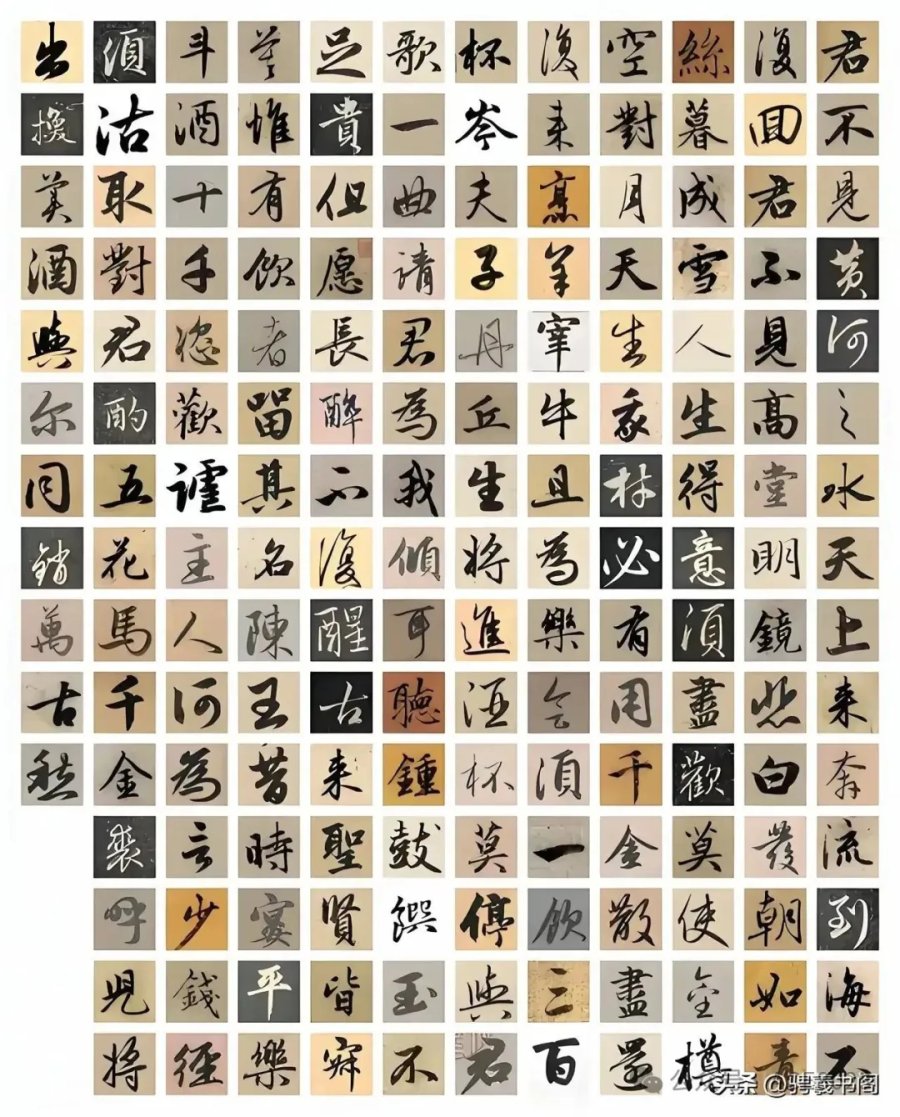 君不見黄河之水天上来奔流到海不
復回君不見高堂明鏡悲白發朝如青
絲暮成雪人生得意須盡歡莫使金樽
空對月天生我材必有用千金散盡還
復来烹羊宰牛且為樂會須一飲三百
杯岑夫子丹丘生將進酒杯莫停與君
歌一曲請君為我傾耳聽鍾鼓饌玉不
足貴但愿長醉不復醒古来聖賢皆寂
莫惟有飲者留其名陳王昔時宴平樂
斗酒十千恣歡謔主人何為言少錢徑
須沽取對君酌五花馬千金裘呼兒將
出換美酒與尔同銷萬古愁
头条 @骋羲书阁